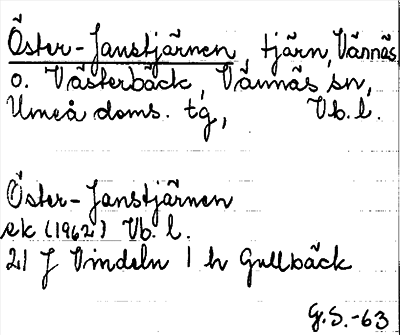 Öster-Janstjärnen, tjärn, Vännäs
o. Västerbäck, Vännäs sn,
Umeå doms. tg, Vb. l.
Öster-Janstjärnen
ek (1962) Vb. l.
21 J Vindeln 1 h Gullbäck
G.S.-63